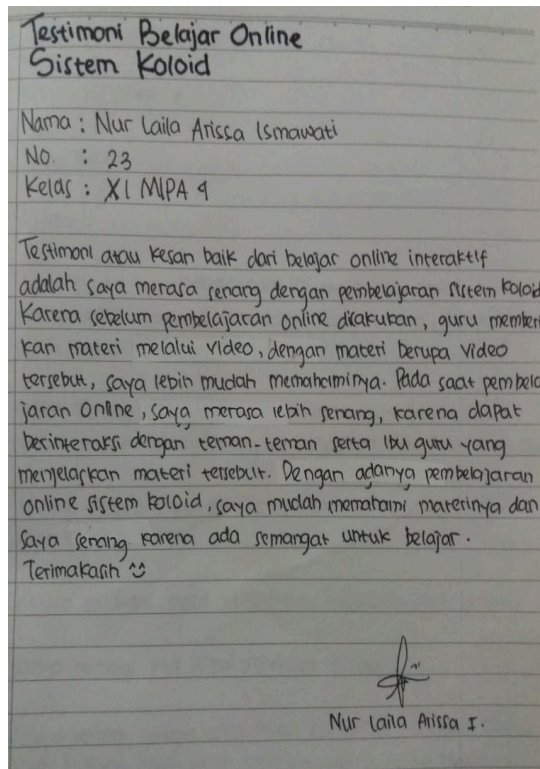 Testimoni Belajar Online
Sistem Koloid
Nama : Nur Laila Arissa Ismawati
No. : 23
Kelas : XI MIPA 4
Testimoni atau kesan baik dari belajar online interaktif
adalah saya merasa senang dengan pembelajaran sistem koloid
Karena sebelum pembelajaran online dilakukan, guru member
kan materi melalui video, dengan materi berupa video
tersebut, saya lebih mudah memahaminya. Pada saat pembela
jaran online, saya merasa lebih senang, karena dapat
berinteraksi dengan teman-teman serta Ibu guru yang
menjelaskan materi tersebut. Dengan adanya pembelajaran
online sistem koloid, saya mudah memahami materinya dan
saya senang karena ada semangat untuk belajar.
Terimakasih
Nur Laila Arissa I.